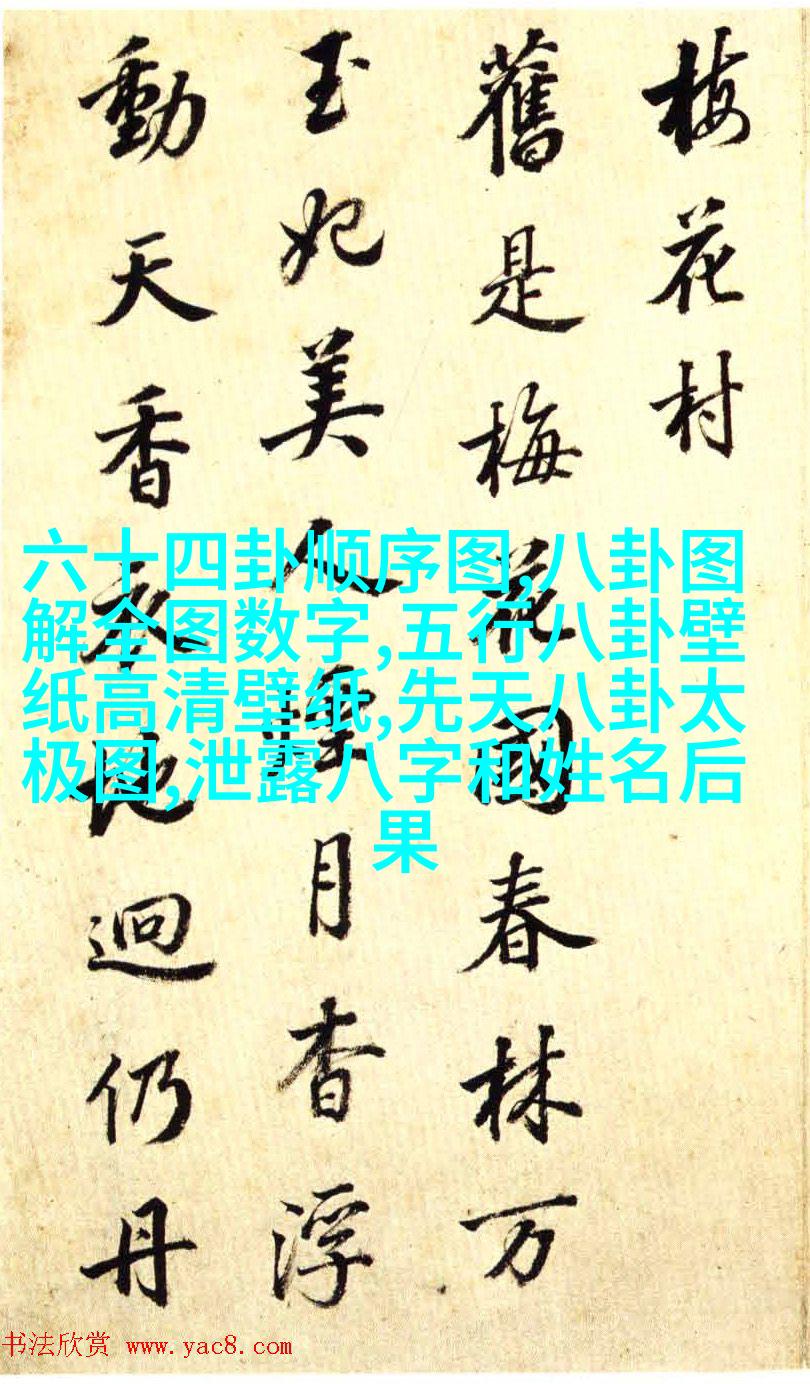 梅花村
舊是梅花國春林万
玉妃美人月香浮
動天香地迥仍丹
六十四卦顺序图,八卦图
解全图数字,五行八卦壁
纸高清壁纸,先天八卦太
极图,泄露八字和姓名后
果
书法欣赏 www.yac8.com